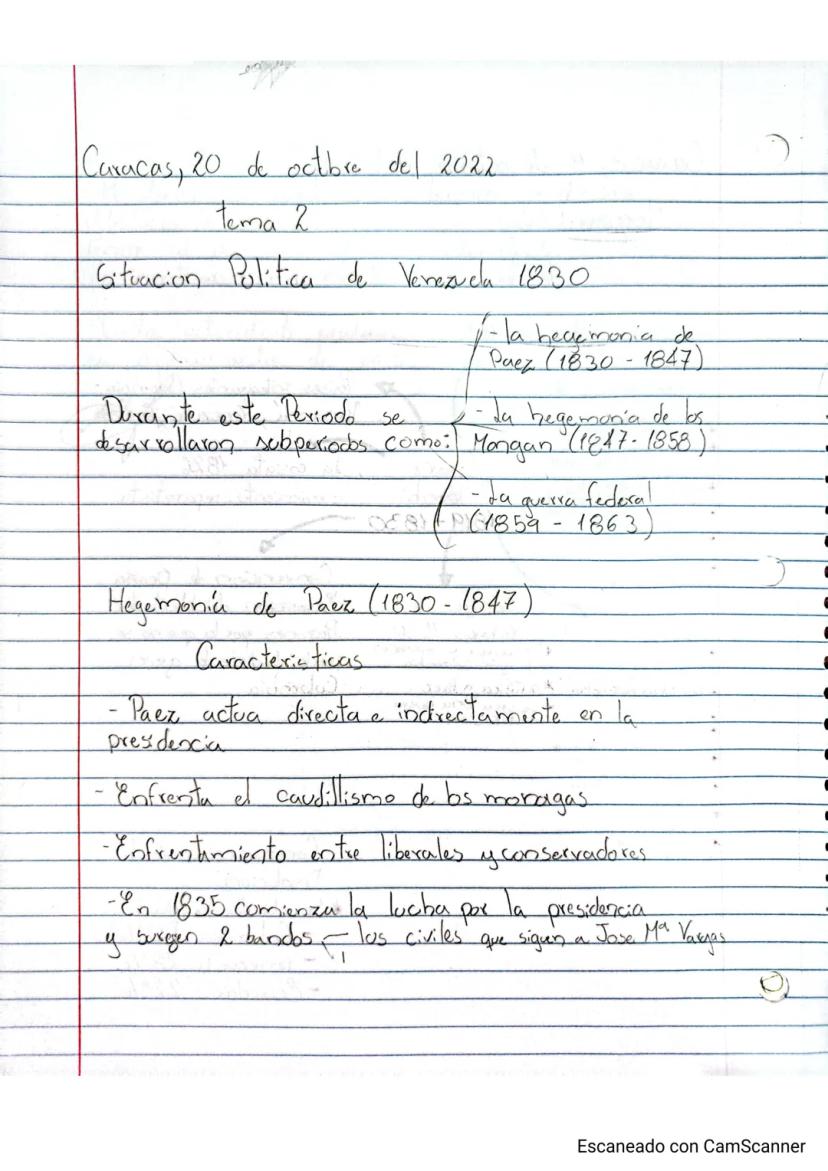 Caracas, 20 de octbre del 2022
tema 2
Situacion Politica de Venezuela 1830
- la hegeminonia de
Paez (1830 - 1847)
Durante este Periodo se
desarrollaron subperiodos como:
- La hegemonia de los
Mongan (1847 - 1858)
- La guerra federal
(1859 - 1863)
Hegemonía de Paez (1830 - 1847)
Caracteristicas
- Paez actua directa e indirectamente en la
presidencia
- Enfrenta el caudillismo de los moragas
- Enfrentamiento entre liberales y conservadores
- En 1835 comienza la lucha por la presidencia
y surgen 2 bandos - los civiles que siguen a Jose Mª Vargas
Escaneado con CamScanner